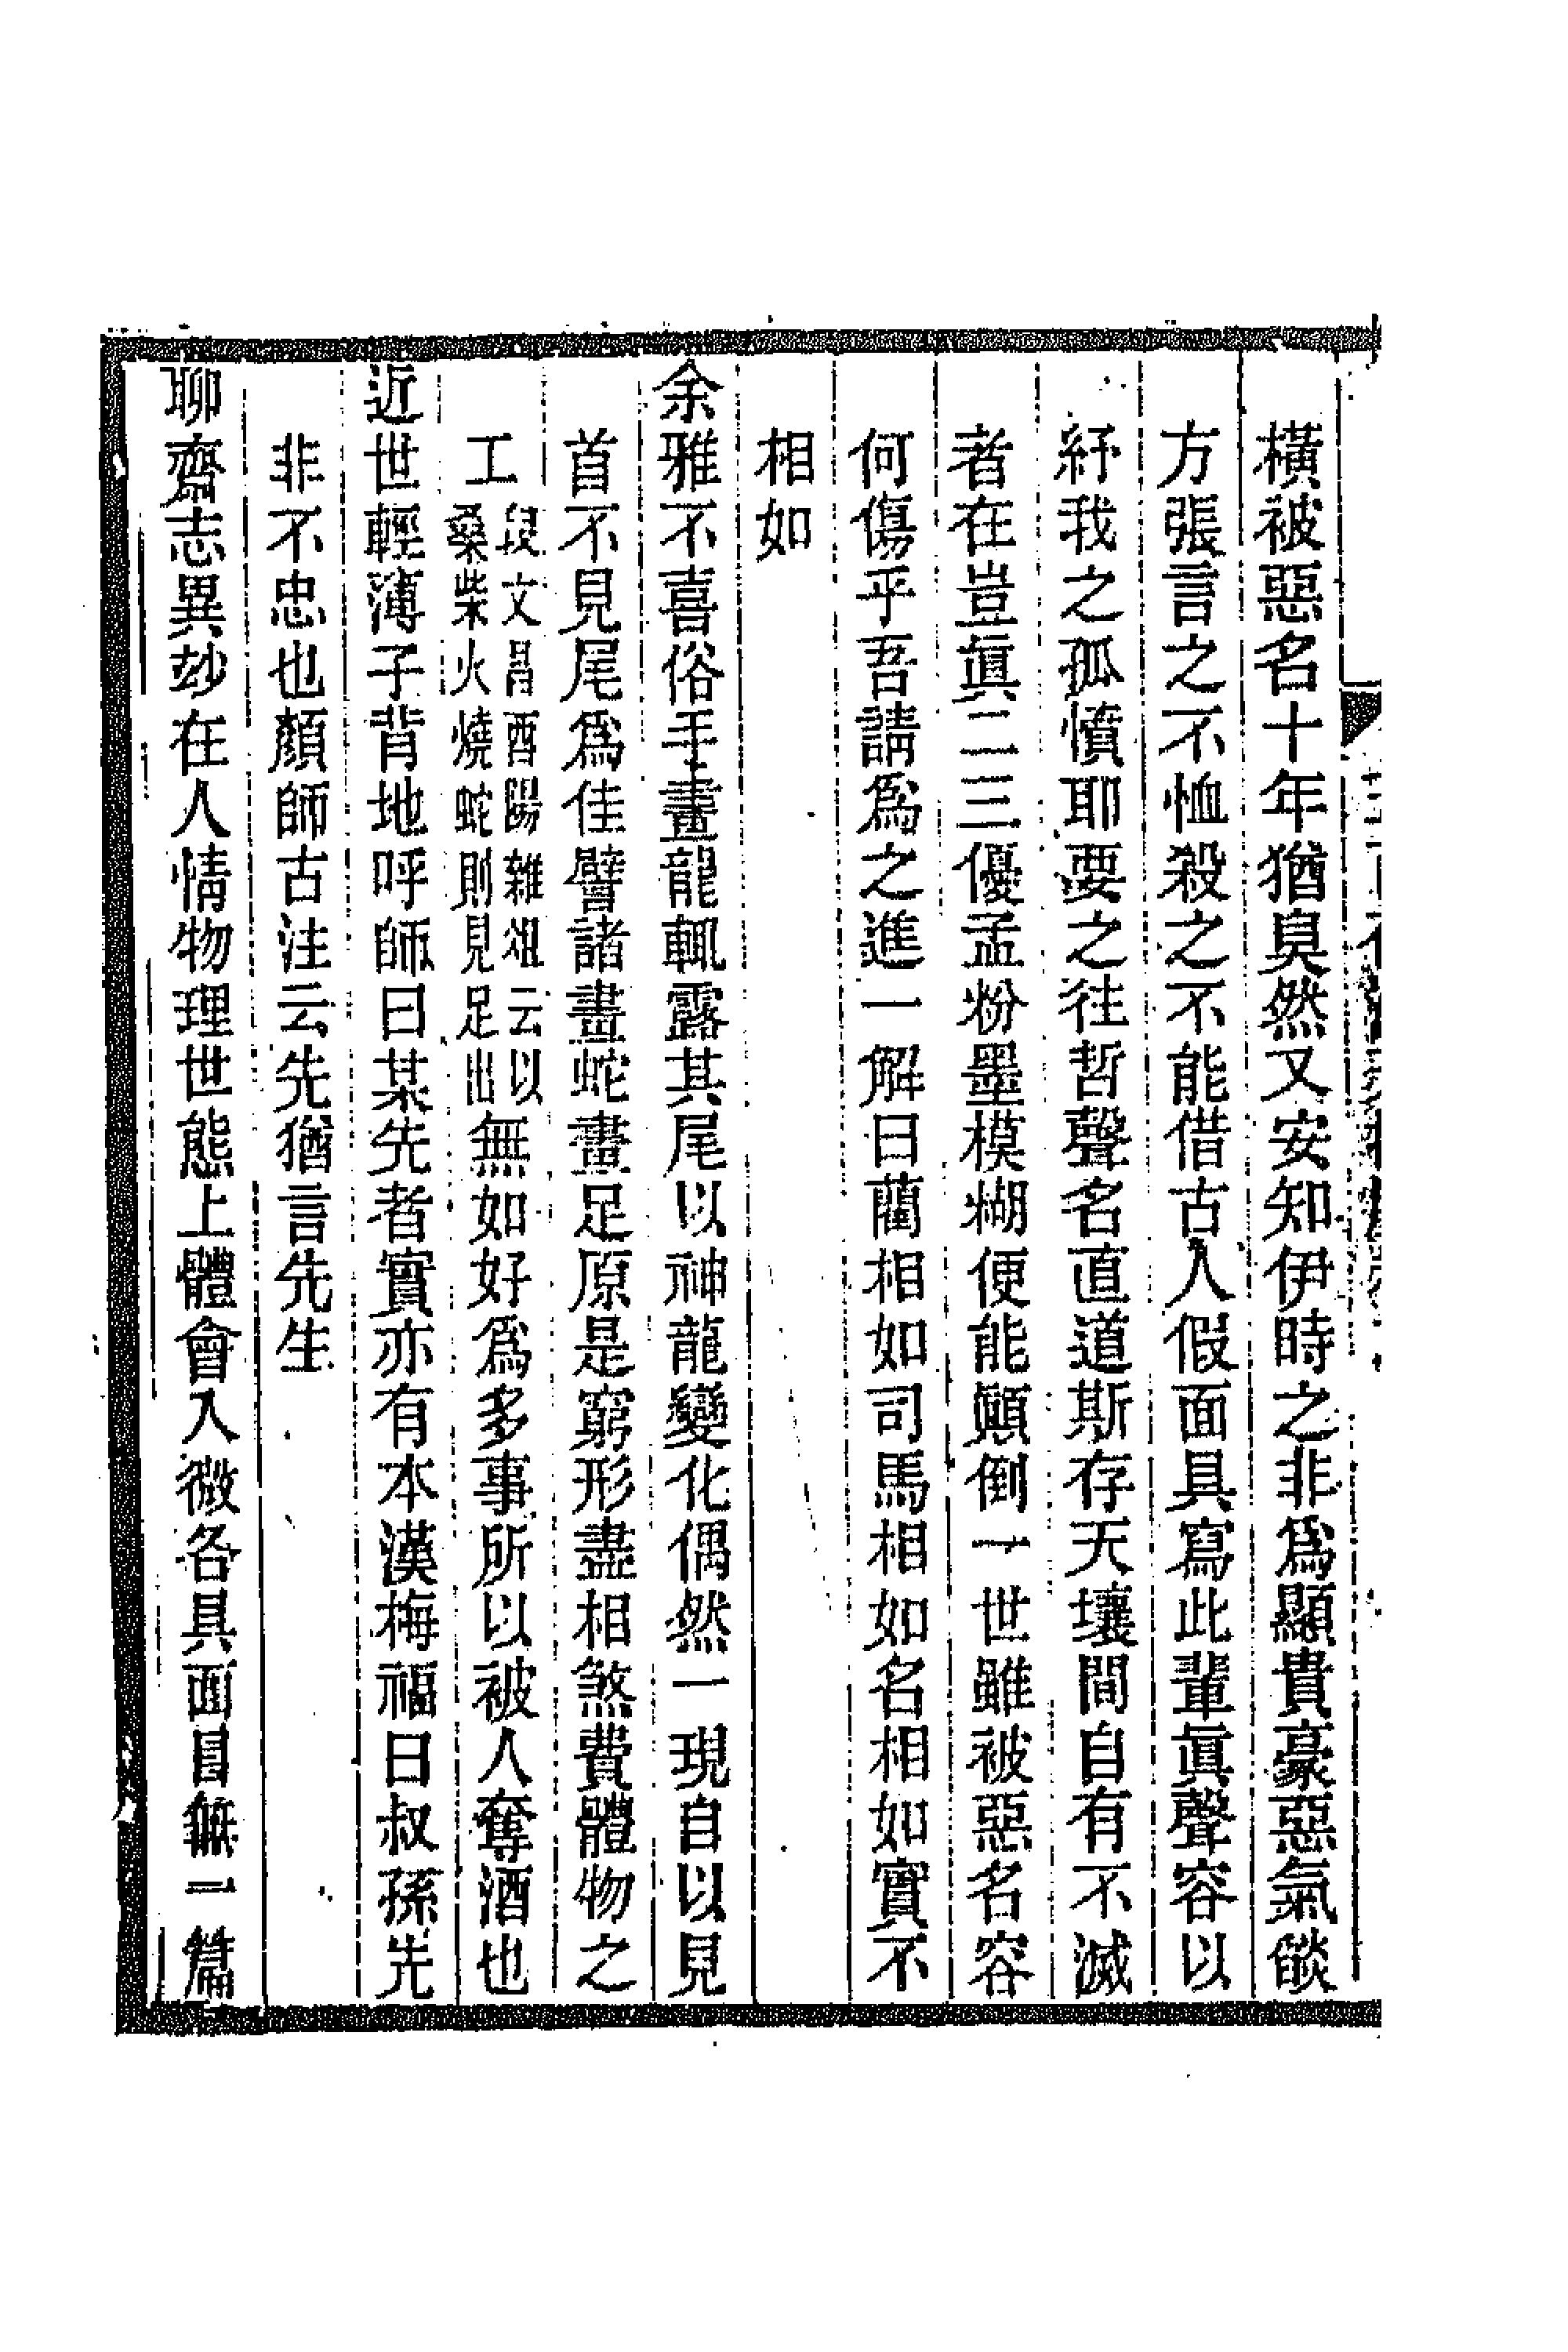 橫被惡名十年猶臭然又安知伊時之非爲顯貴豪惡氣燄
方張言之不恤殺之不能借古人假面具寫此輩眞聲容以
紓我之孤憤耶要之往哲聲名直道斯存天壤間自有不滅
者在豈眞二三優孟粉墨模糊便能顚倒一世雖被惡名容
何傷乎吾請爲之進一解曰藺相如司馬相如名相如實不
相如
余雅不喜俗手畫龍輒露其尾以神龍變化偶然一現自以見
首不見尾爲佳譬諸畫蛇畫足原是窮形盡相煞費體物之
工段文昌酉陽雜俎云以桑柴火燒蛇則見足出無如好爲多事所以被人奪酒也
近世輕薄子背地呼師曰某先者實亦有本漢梅福曰叔孫先
非不忠也顏師古注云先猶言先生
聊齋志異玅在人情物理世態上體會入微各具面目無一篇